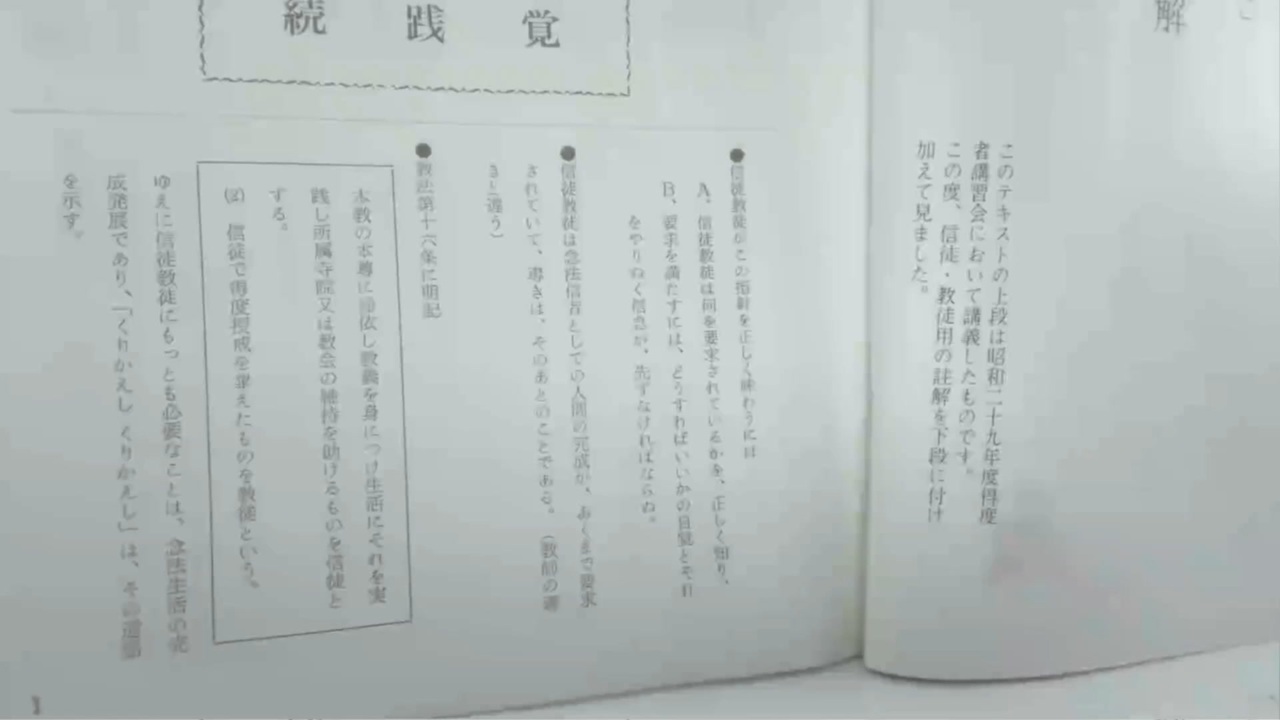 解
このテキストの上段は昭和二十九年度得度
者講習会において講義したものです。
この度、信徒・教徒用の註解を下段に付け
加えて見ました。
覚
践
続
●信徒教徒がこの指針を正しく味わうには
A、信徒教徒は何を要求されているかを、正しく知り、
B、要求を満たすには、どうすればいいかの自覚とそれ
をやりぬく信念が、先ずなければならぬ。
●信徒教徒は念法信者としての人間の完成が、あくまで要求
されていて、導きは、そのあとのことである。（教師の導
きと違う）
●教法第十六条に明記
本教の本尊に帰依し教義を身につけ生活にそれを実
践し所属寺院又は教会の維持を助けるものを信徒と
する。
(2) 信徒で得度授戒を畢えたものを教徒という。
ゆえに信徒教徒にもっとも必要なことは、念法生活の完
成発展であり、「くりかえしくりかえし」は、その道順
を示す。
1